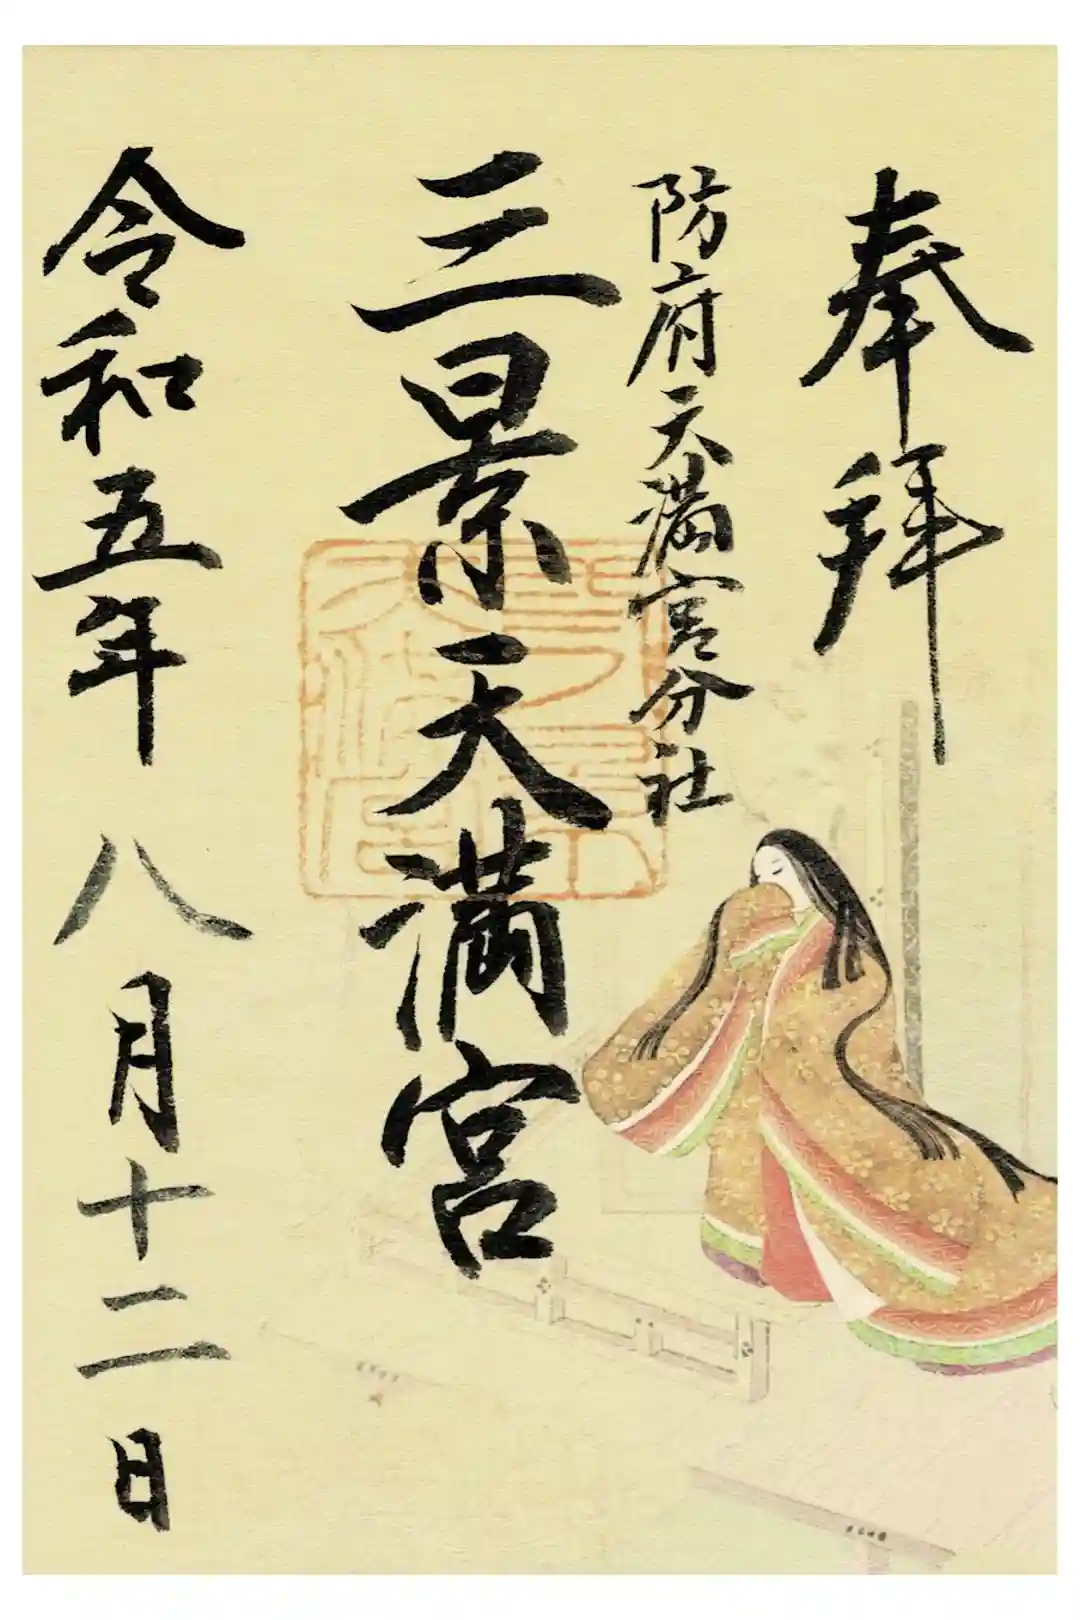 奉拝
防府天満宮分社
三景天満宮
令和五年八月十二日